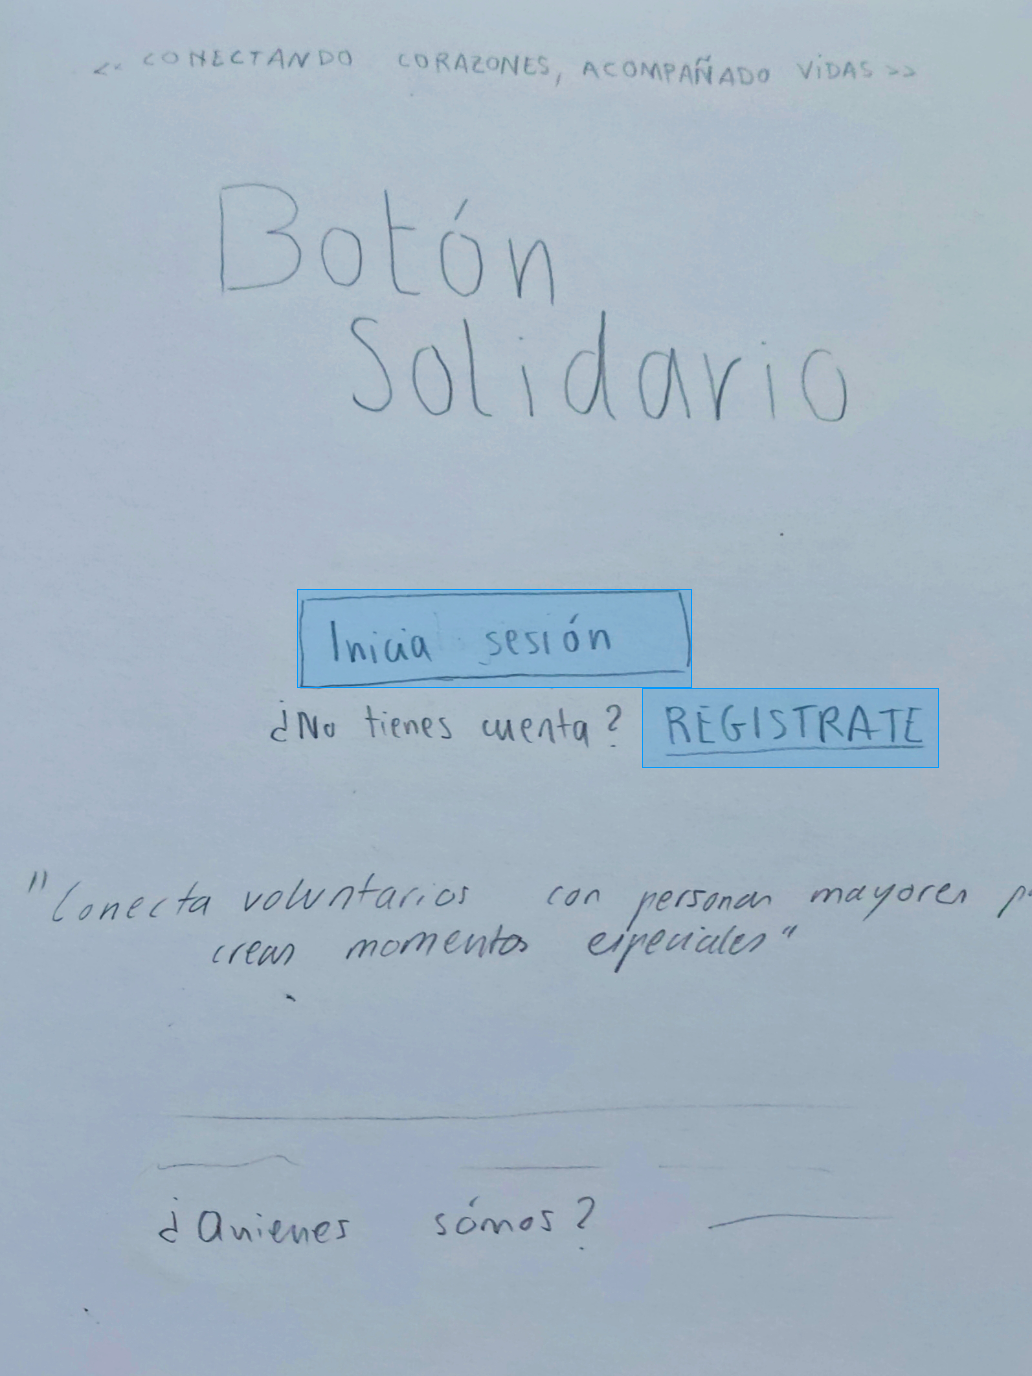 << CONECTANDO CORAZONES, ACOMPAÑADO VIDAS >>
Botón
Solidario
Inicia sesión
¿No tienes cuenta? REGISTRATE
"Conecta voluntarios con personas mayores p
crear momentos especiales"
¿Quienes sómos?